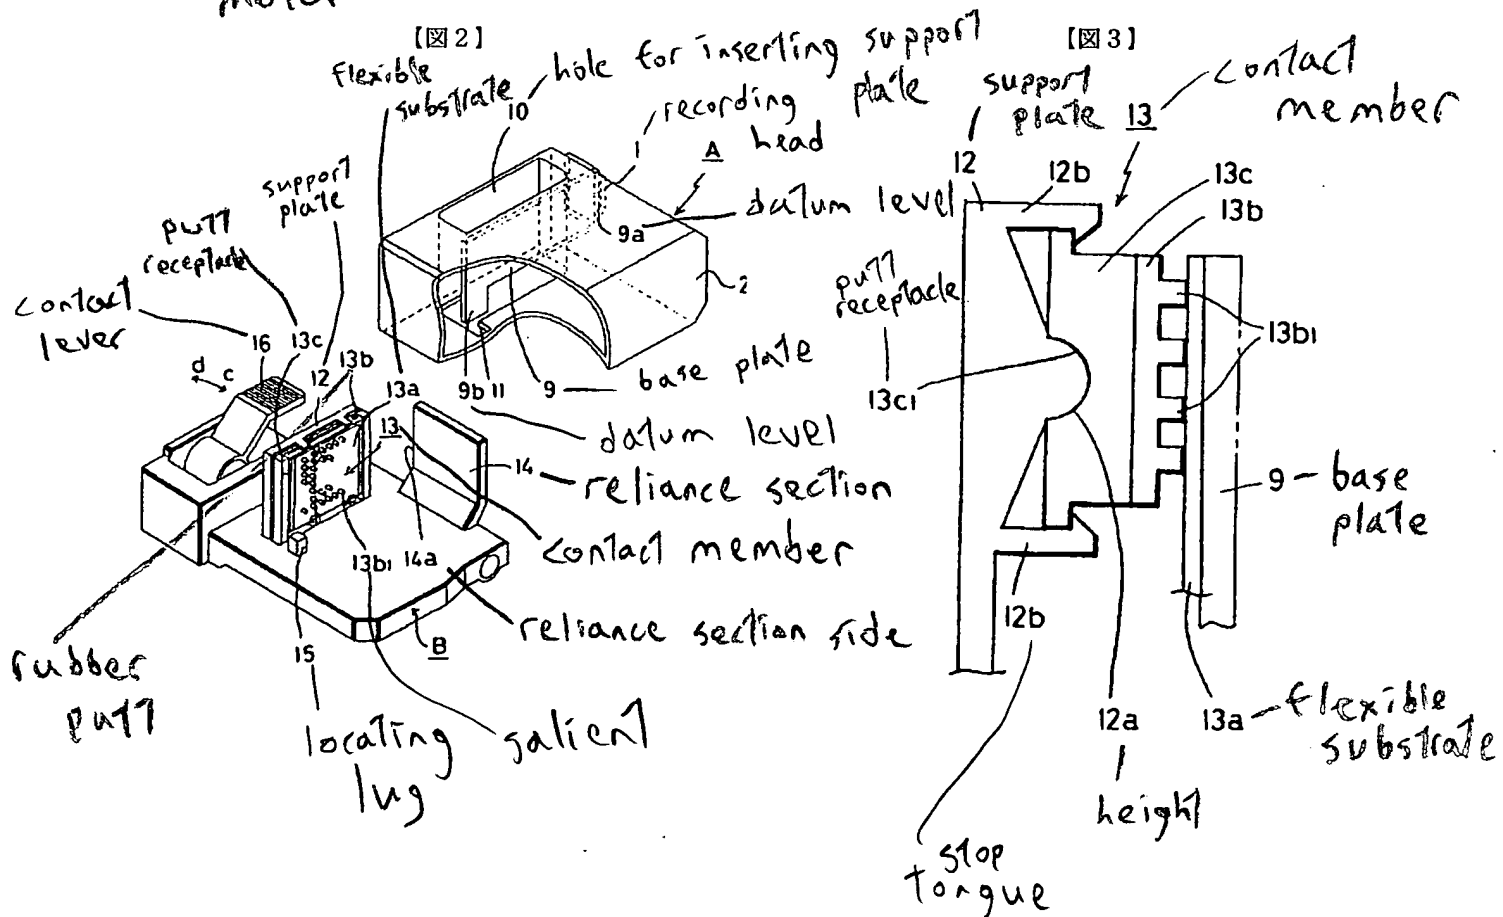 【図2】
flexible
substrate
hole for inserting support
plate
10
1
recording
head
A
datum level
9a
2
support
plate
putt
receptacle
contact
lever
16
13c
12
13b
13a
d
c
9b
11
9
base plate
datum level
13
14
reliance section
contact member
13b1
14a
reliance section side
B
15
rubber
putt
locating
lug
salient
【図3】
support
plate
13
contact
member
12
12b
13c
13b
putt
receptacle
13c1
13b1
9 - base
plate
12b
12a
13a
flexible
substrate
height
stop
tongue